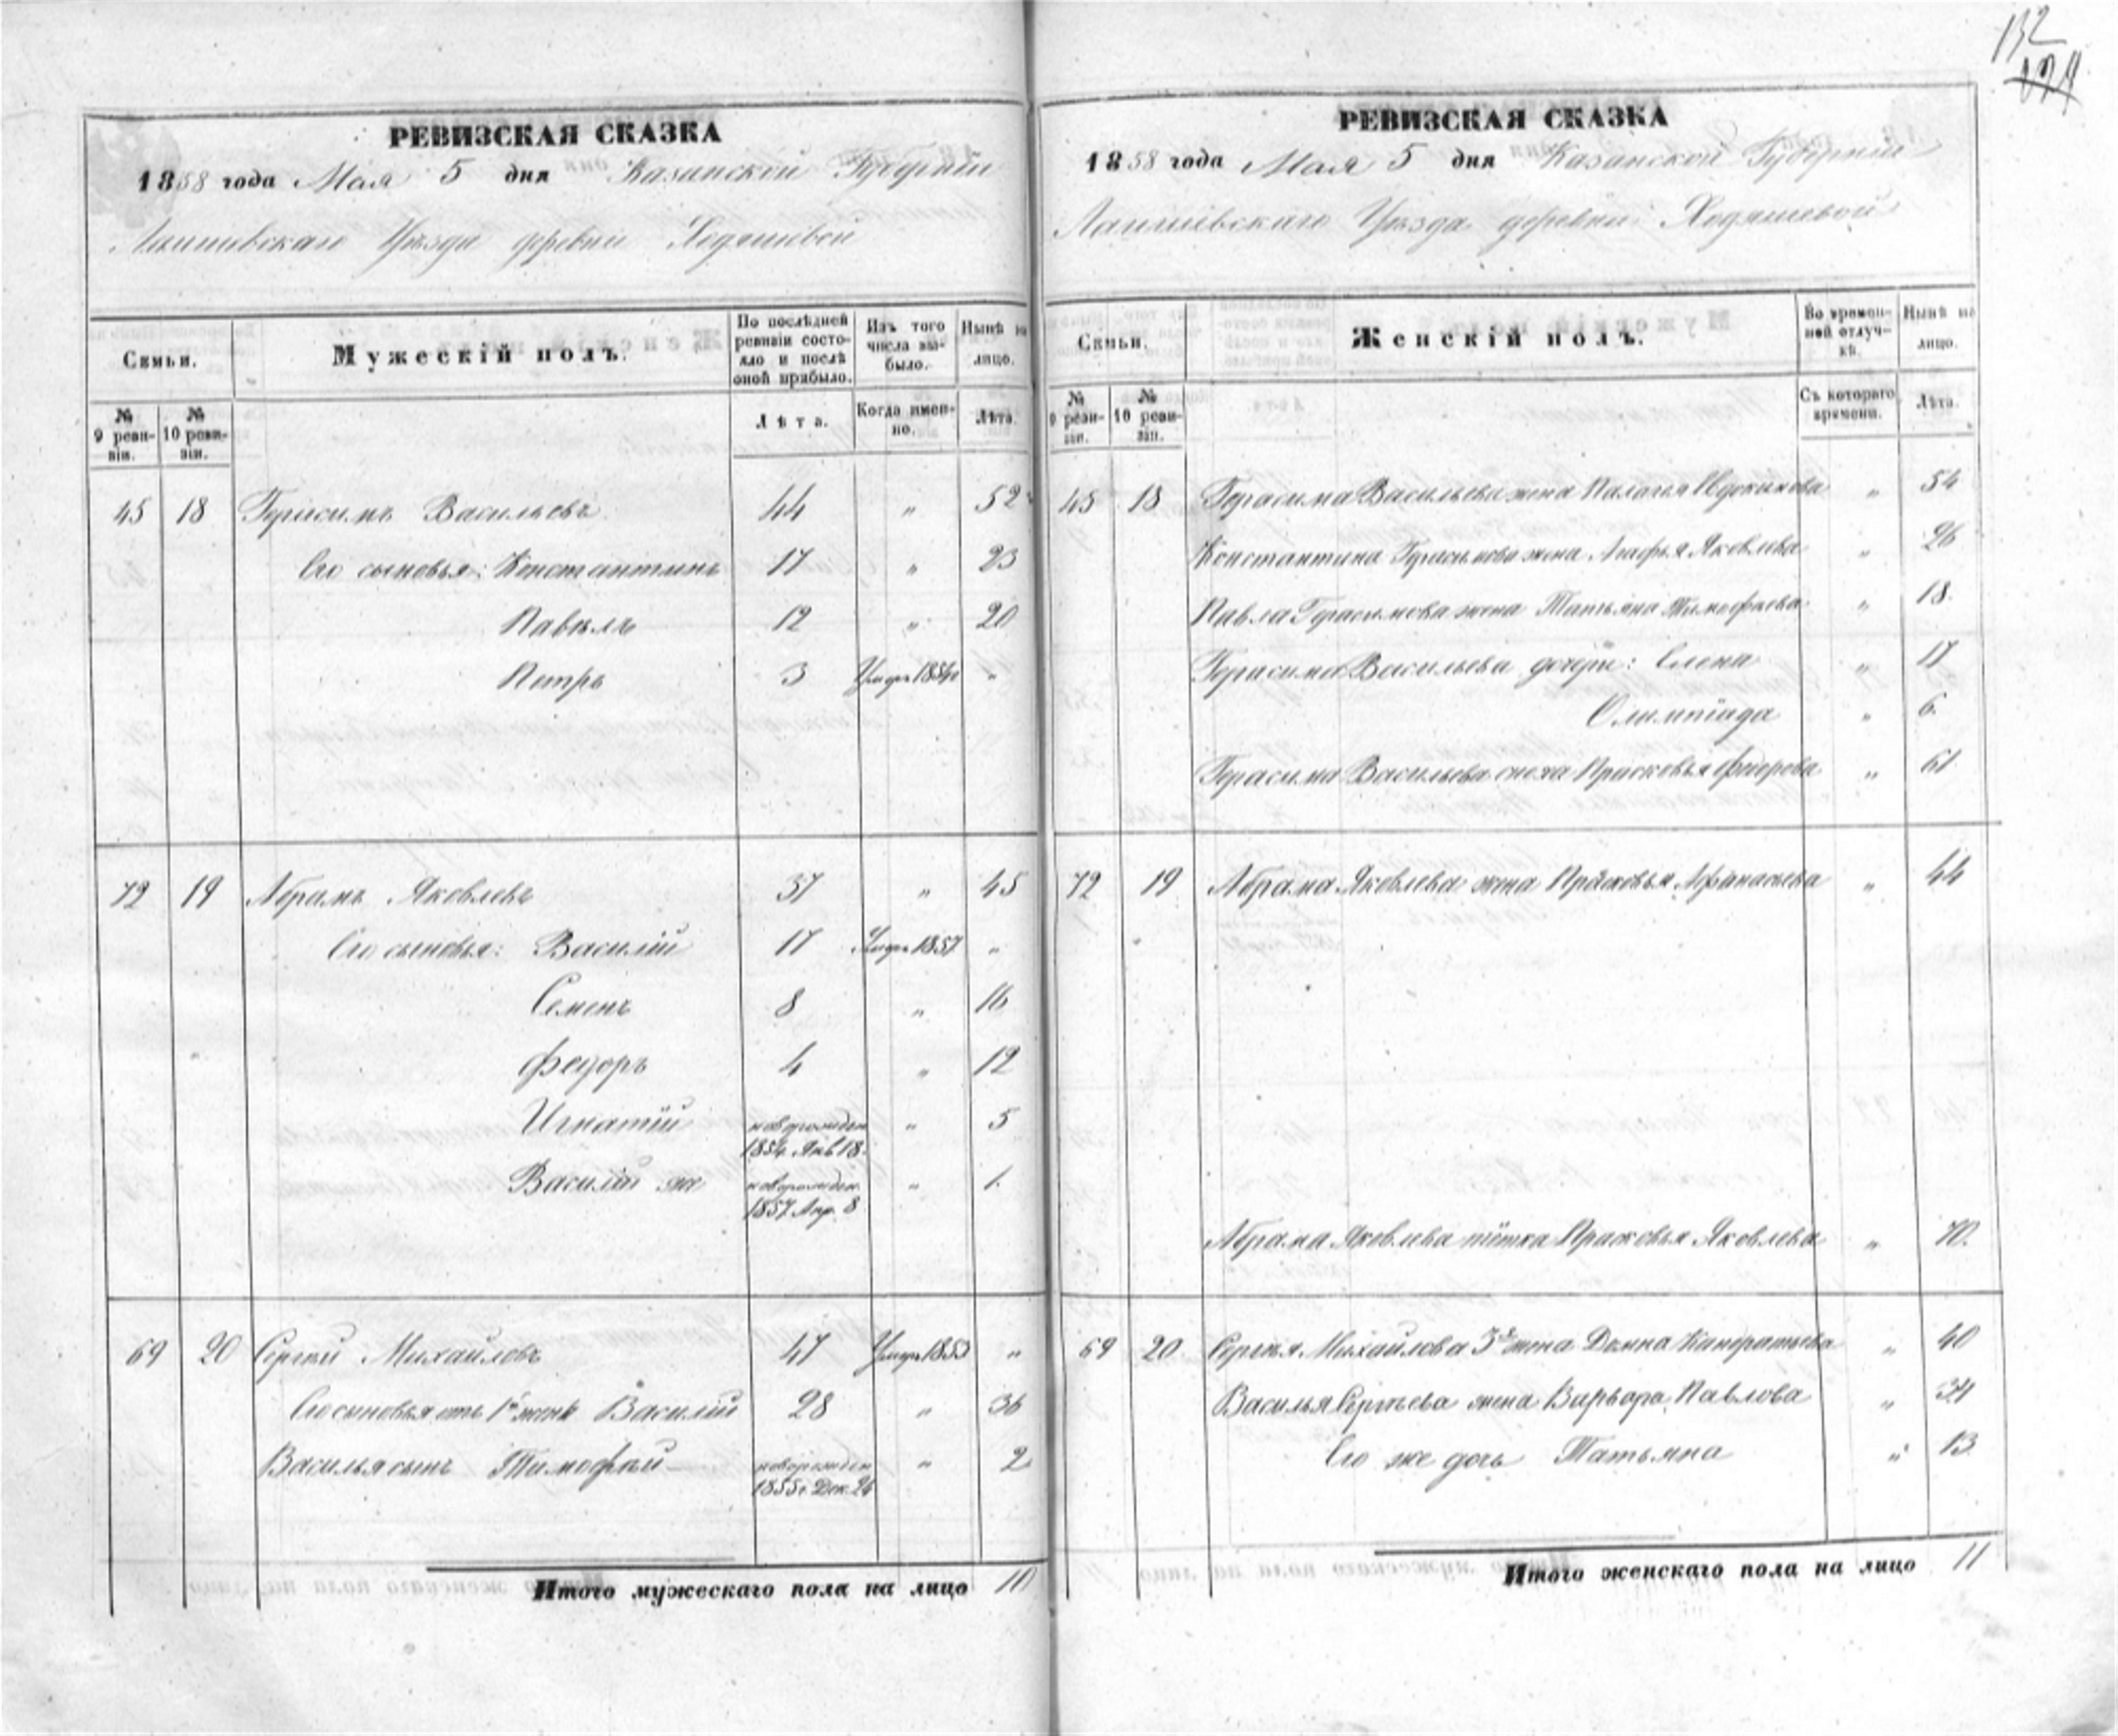 132
124
РЕВИЗСКАЯ СКАЗКА
1858 года Мая 5 дня Казанской Губернии
Лаишевскаго Уѣзда деревни Ходяшевой
Семьи.
Мужескій полъ.
По послѣдней ревизіи состояло и послѣ оной прибыло.
Изъ того числа выбыло.
Нынѣ на лицо.
№ 9 ревизіи.
№ 10 ревизіи.
Лѣта.
Когда именно.
Лѣта.
45 18 Герасимъ Васильевъ 44 " 52
Его сыновья: Константинъ 17 " 23
Павелъ 12 " 20
Петръ 3 Умеръ 1854 "
72 19 Абрамъ Яковлевъ 37 " 45
Его сыновья: Василій 17 Умеръ 1857 "
Семенъ 8 " 16
Федоръ 4 " 12
Игнатій новорожден 1854. Янв 18. " 5
Василій же новорожден. 1857. Апр. 8 " 1.
69 20 Сергей Михайловъ 47 Умеръ 1853 "
Его сыновья отъ 1й жены Василій 28 " 36
Василья сынъ Тимофей новорожден 1855 г. Дек. 24 " 2
Итого мужескаго пола на лицо 10
РЕВИЗСКАЯ СКАЗКА
1858 года Мая 5 дня Казанской Губерніи
Лаишевскаго Уѣзда деревни Ходяшевой
Семьи.
Женскій полъ.
Во временной отлучкѣ.
Нынѣ на лицо.
№ 9 ревизіи.
№ 10 ревизіи.
Съ котораго времени.
Лѣта.
45 18 Герасима Васильева жена Палагея Евдокимова " 54
Константина Герасимова жена Агафья Яковлева " 26
Павла Герасимова жена Татьяна Тимофеева " 18.
Герасима Васильева дочери: Елена " 17
Олимпіада " 6.
Герасима Васильева сноха Прасковья Федорова " 61
72 19 Абрама Яковлева жена Прасковья Афанасьева " 44
Абрама Яковлева тётка Прасковья Яковлева " 70.
69 20 Сергея Михайлова 3я жена Домна Кандратьева " 40
Василья Сергеева жена Варвара Павлова " 34
Его же дочь Татьяна " 13
Итого женскаго пола на лицо 11